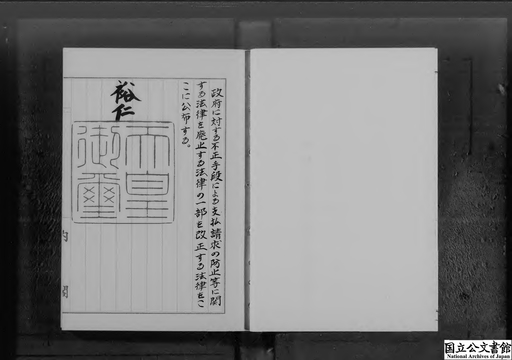 政府に対する不正手段による支払請求の防止等に関
する法律を廃止する法律の一部を改正する法律をこ
こに公布する。
裕仁
天皇
御璽
内
閣
国立公文書館
National Archives of Japan